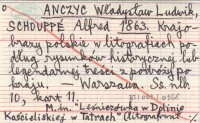 ANCZYC Władysław Ludwik,
SCHOUPPÉ Alfred 1863. Krajo-
brazy polskie w litografiach po-
dług rysunków historycznej lub
legendarnej treści z podróży po
kraju. Warszawa. Ss. nlb
10, kart 11
M. in. "Leśniczówka w Dolinie
Kościeliskiej w Tatrach" (litografowa